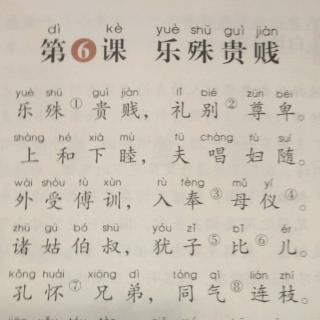 dì kè yuè shū guì jiàn
第6课 乐殊贵贱
yuè shū guì jiàn lǐ bié zūn bēi
乐殊①贵贱，礼别②尊卑。
shàng hé xià mù fū chàng fù suí
上和下睦，夫唱妇随。
wài shòu fù xùn rù fèng mǔ yí
外受傅训，入奉③母仪④。
zhū gū bó shū yóu zǐ bǐ ér
诸姑伯叔，犹子⑤比⑥儿。
kǒng huái xiōng dì tóng qì lián zhī
孔怀⑦兄弟，同气⑧连枝。